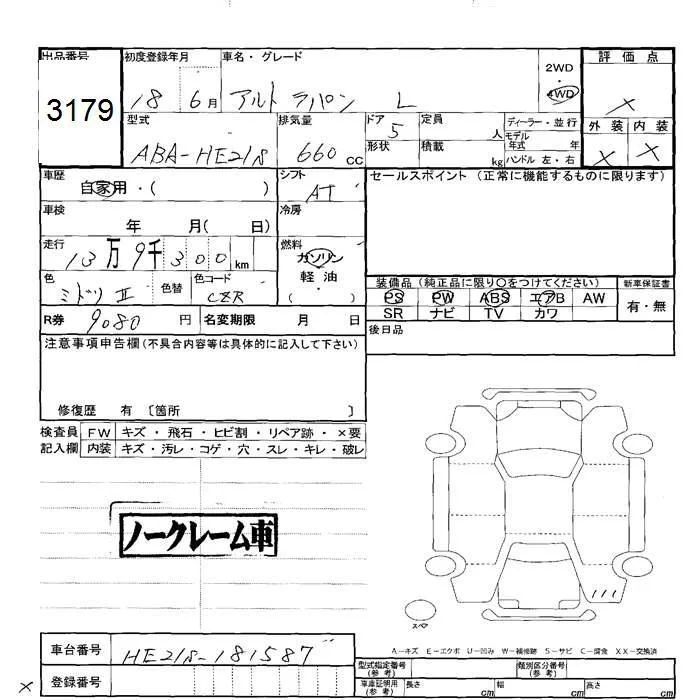 出品番号 初度登録年月 車名・グレード 評価点
3179 18 6月 アルト ラパン L 2WD・4WD ×
型式 排気量 ドア 定員 ディーラー・並行 外装 内装
ABA-HE21S 660cc 5 人 モデル年式 年 × ×
形状 積載 kg ハンドル 左・右
車歴 シフト セールスポイント (正常に機能するものに限ります)
自家用・( ) AT
車検 冷房
年 月( 日)
走行 燃料
13万9千300km ガソリン
軽油
( )
色 色替 色コード 装備品 (純正品に限り○をつけてください) 新車保証書
ミドリII CZR PS PW ABS エアB AW 有・無
SR ナビ TV カワ
R券 9080円 名変期限 月 日 後日品
注意事項申告欄(不具合内容等は具体的に記入して下さい)
修復歴 有 〔箇所 〕
検査員 FW キズ・飛石・ヒビ割・リペア跡・×要
記入欄 内装 キズ・汚レ・コゲ・穴・スレ・キレ・破レ
ノークレーム車
スペア
A-キズ E-エクボ U-凹み W-補修跡 S-サビ C-腐食 XX-交換済
車台番号 HE21S-181587 型式指定番号(参考) 類別区分番号(参考)
× 登録番号 車庫証明用(参考) 長さ cm 幅 cm 高さ cm